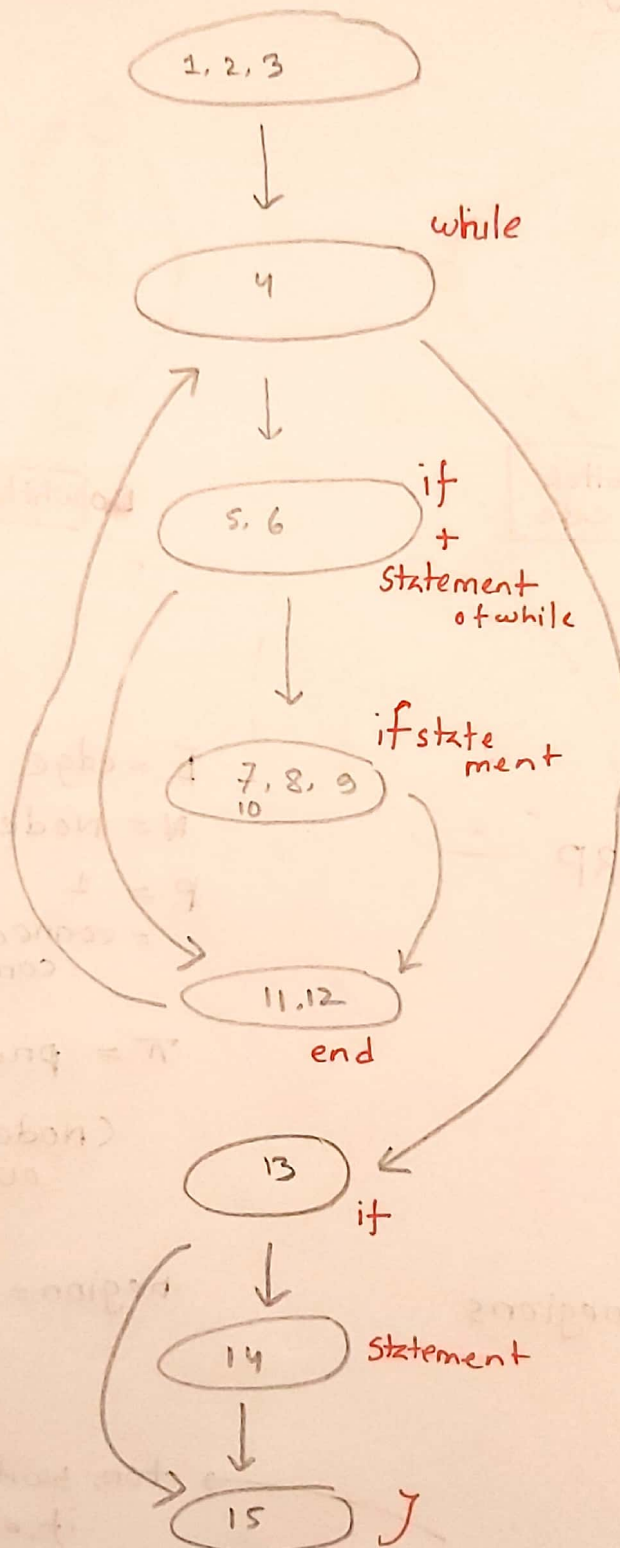 1, 2, 3
while
4
if
5, 6
+
statement
of while
if state
ment
7, 8, 9
10
11, 12
end
13
if
14
statement
15
}